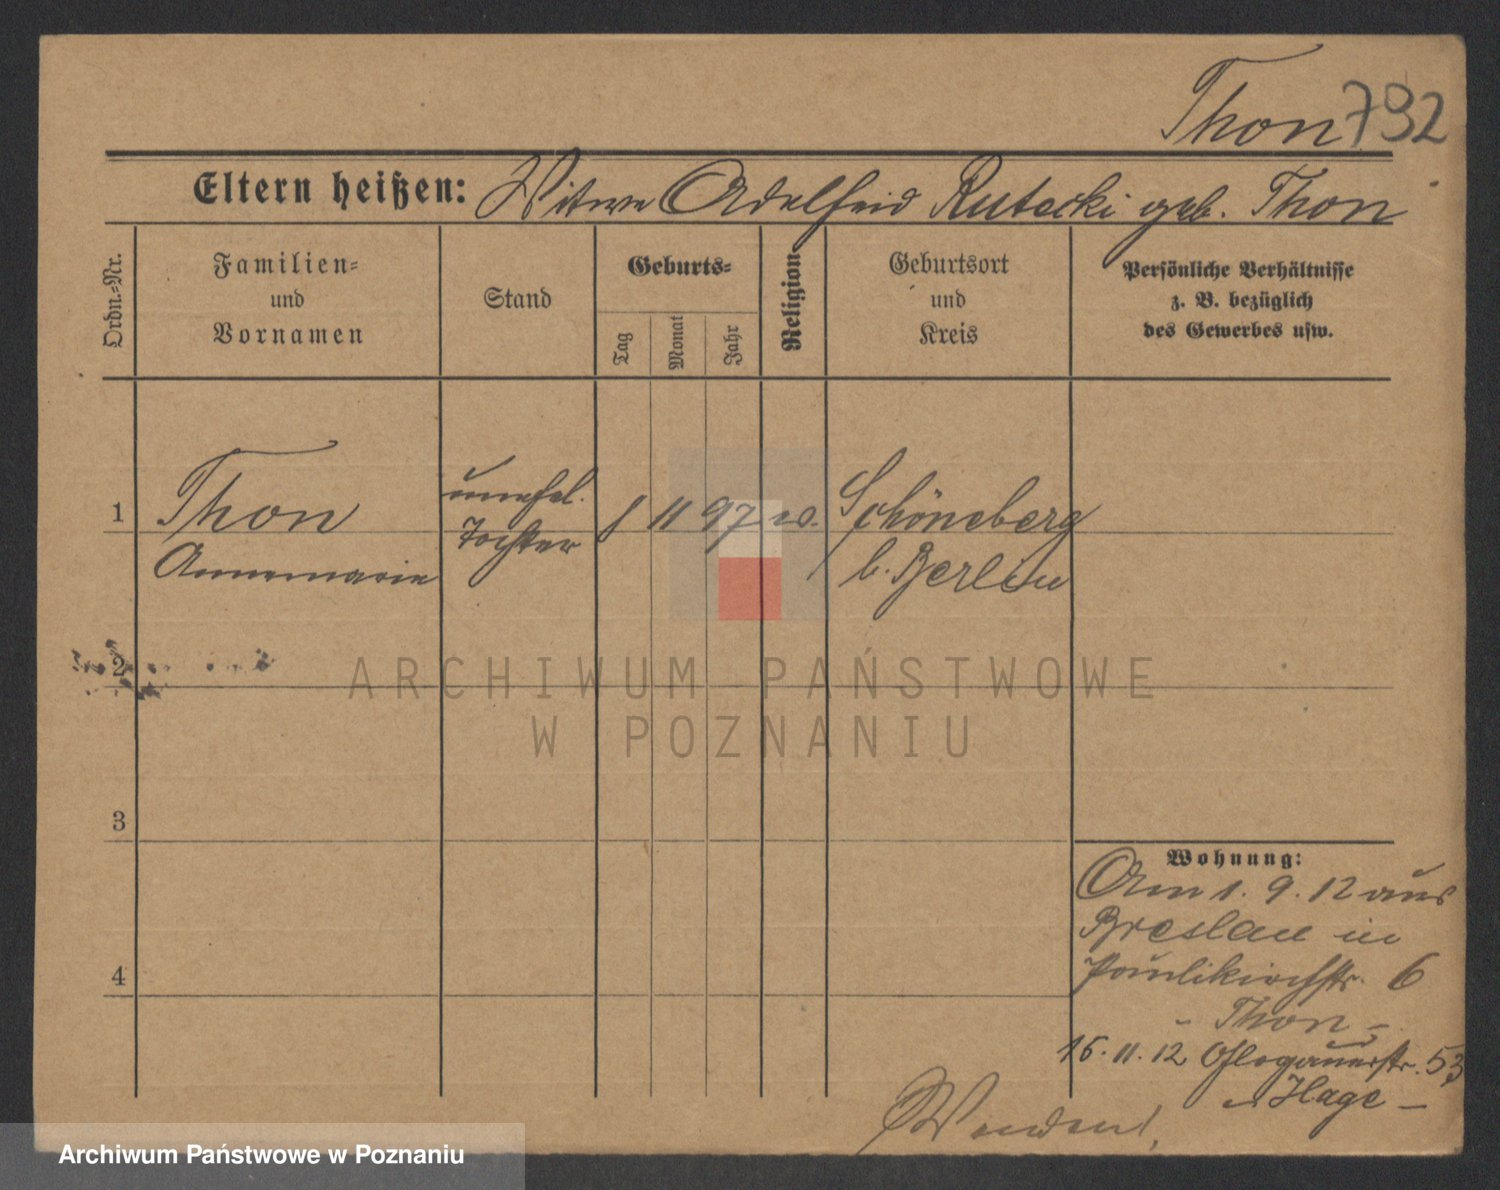 Thon 792
Eltern heißen: Witwe Adelheid Rutecki geb. Thon
Ordn.=Nr.
Familien=
und
Vornamen
Stand
Geburts=
Tag
Monat
Jahr
Religion
Geburtsort
und
Kreis
Persönliche Verhältnisse
z. B. bezüglich
des Gewerbes usw.
1 Thon unehel. 8 11 97 ev. Schöneberg
Annemarie Tochter b. Berlin
2
3
4
Wohnung:
Am 1. 9. 12 aus
Breslau in
Paulikirchstr. 6
- Thon -
15. 11. 12 Glogauerstr. 53
- Hage -
Wenden!
ARCHIWUM PAŃSTWOWE
W POZNANIU
Archiwum Państwowe w Poznaniu